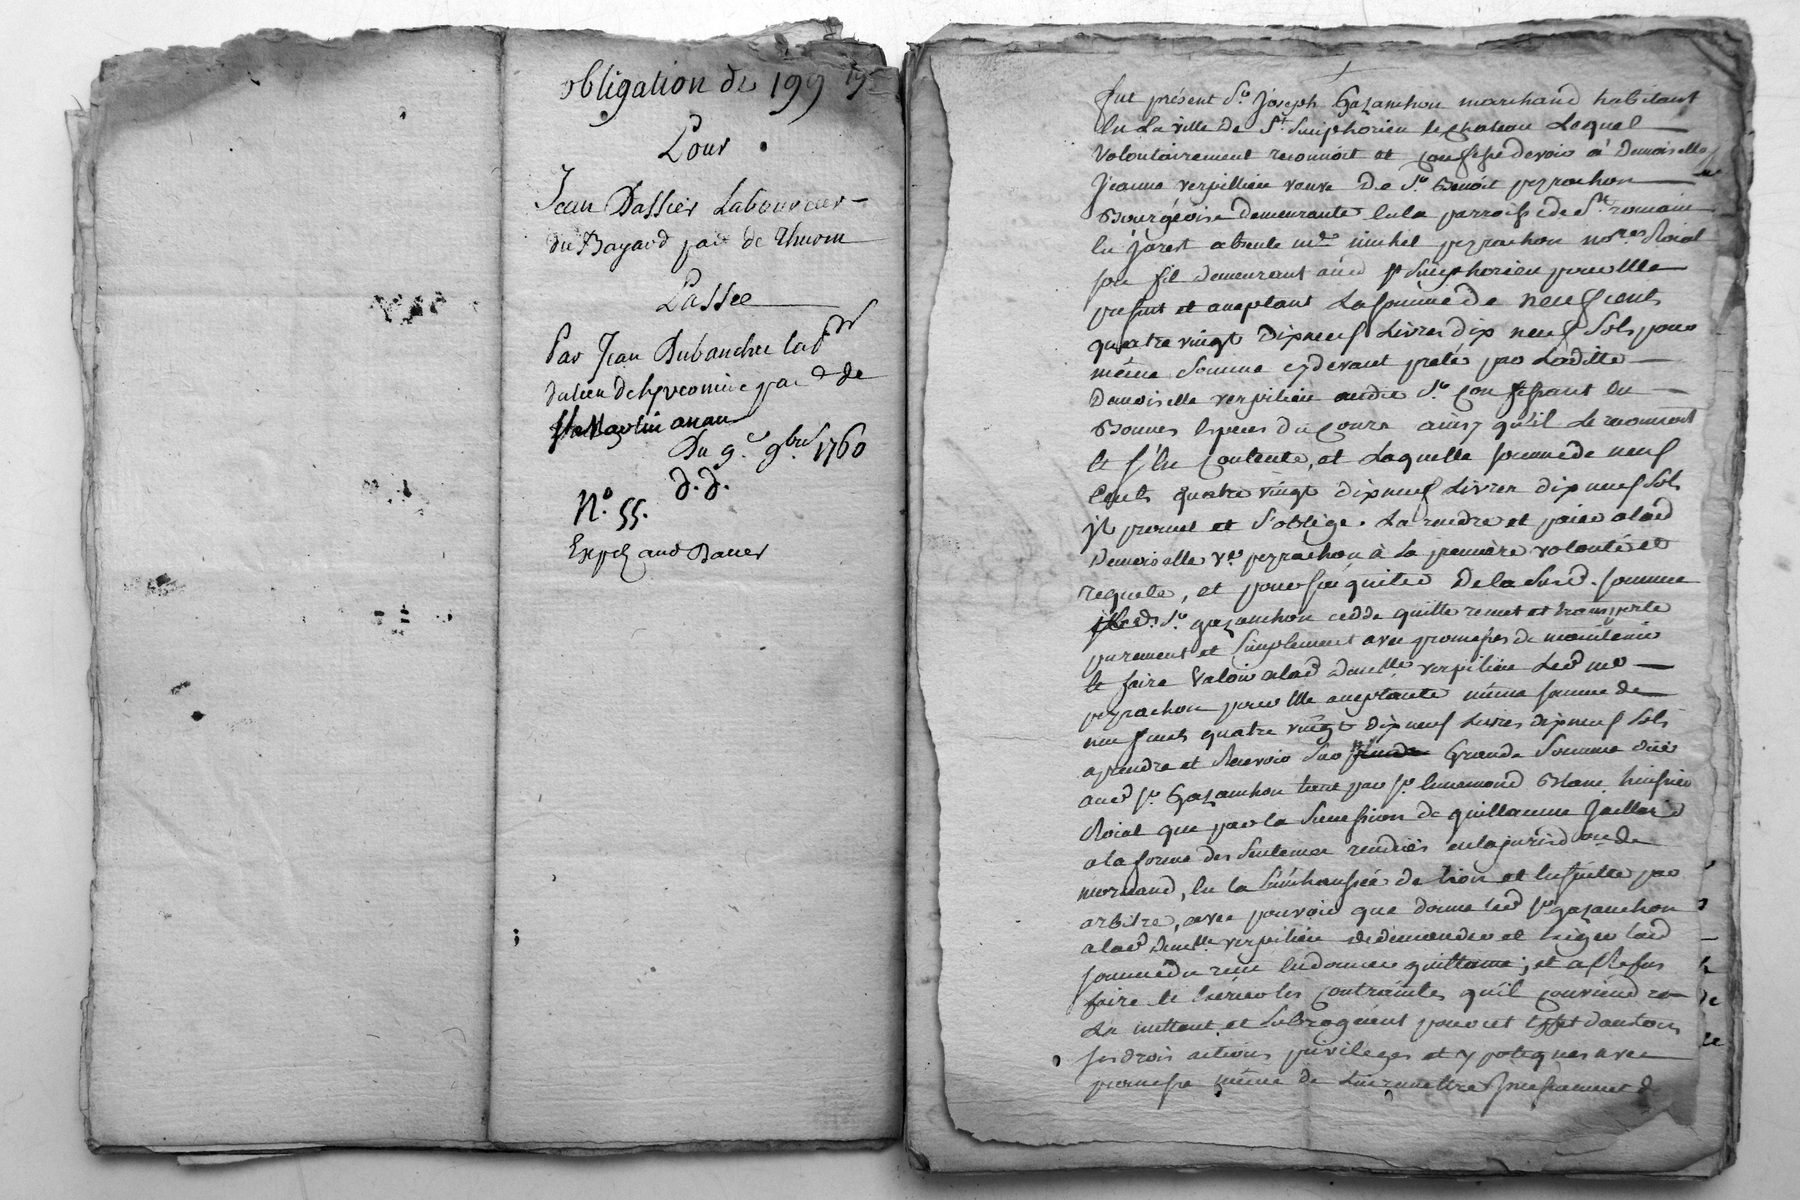 obligation de 199 lt 19s
Pour
Jean Dassier Laboureur
du Bayard par. de Thurin
Passée
Par Jean Dubanchet lab.dr
du lieu de par.e de
St Martin anau
Du 9.e 9bre 1760
d. d.
N.o 55.
Exp.ée aud Dassier
fut présent Sr. Joseph Gazanchon marchand habitant
en La ville de St. Simphorien le chateau Lequel
volontairement reconnoit et confesse devoir a Demoiselle
Jeanne verpilliere veuve de Sr. Benoit peyrachon
Bourgeoise demeurante en la parroisse de St. romain
en Jarest absente me. michel peyrachon nore. Roial
son fil demeurant aud St Simphorien pour Elle
present et aceptant La somme de neuf cents
quatre vingt Dixneuf Livres dix neuf Sols pour
même Somme cydevant preté par Laditte
Demoiselle verpiliere audit Sr. Confessant en
Bonnes Especes du Cours ainsy qu'il Le reconnoit
et s'En Contente, et Laquelle somme de neuf
Cents quatre vingt dixneuf Livres dix neuf Sols
jl promet et S'oblige. La rendre et paier alad
Demoiselle ve. peyrachon à La première volonté et
requete, et pour s'acquiter de la Susd. somme
led. Sr. gazanchon cedde quitte remet et transporte
purement et Simplement avec promesses de maintenir
et faire valoir alad Delle. verpiliere Led me
peyrachon pour Elle aceptante même somme de
neuf cents quatre vingt dixneuf Livres dixneuf Sols
a prendre et Recevoir Sur plus Grande Somme düe
aud Sr. Gazanchon tant par Sr. Ennemond Blanc huissier
Roial que par la Succession de guillaume Jaillard
a la forme des Sentences rendües en la jurisd.on de
mornand, En la Sénéchaussée de Lion et Ensuitte par
arbitre, avec pouvoir que donne led Sr gazanchon
a lad Delle. verpiliere de demander et Exiger lad
somme du reçu En donner quittance, et au Refus
faire et Exercer les Contraintes qu'il Conviendra
La mettant et Subrogeant pour cet Effet dans tous
ses drois actions privileges et ypoteques avec
promesse même de Lui remettre Incessamment